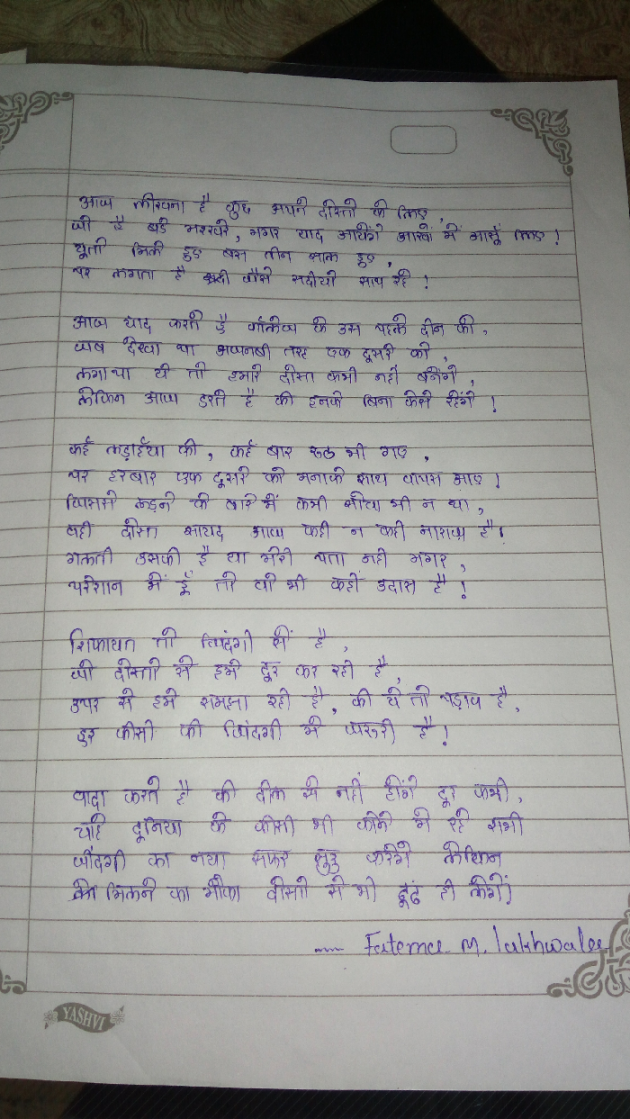 आज लीखना है कुछ अपने दोस्तो के लिए,
जो है बडे मश्खरे, मगर याद आयेंगे आखों में आसूँ लिए!
यूतो मिले हुए बस तीन साल हुए,
पर लगता है जैसे सदीयो साथ रहे!
आज याद करती हूँ कॉलेज के उस पहले दीन को,
जब देखा था अजनबी तरह एक दूसरे को,
लगा था ये तो हमारे दोस्त कभी नही बनेंगे,
लेकिन आज डरती है की इनके बिना कैसे रहेंगे!
कई लड़ाईया की, कई बार रूठ भी गए,
पर हरबार एक दूसरे को मनाके साथ वापस आए!
जिससे लड़ने के बारे में कभी सोचा भी न था,
वही दोस्त सायद आज कही न कही नाराज है!
गलती उसकी है या मेरी पता नही मगर,
परेशान में हूँ तो वो भी कहीं उदास है!
शिकायत तो जिंदगी से है,
जो दोस्तो से हमे दूर कर रही है,
उपर से हमे समझा रही है, की ये तो पड़ाव है,
हर कीसी की जिंदगी में जरुरी है!
वादा करते है की दील से नहीं होंगे दूर कभी,
चाहे दूनिया के कीसी भी कोने मे रहे सभी
जींदगी का नया सफर शुरु करेंगे लेकिन
मिलने का मौका दोस्तो से भी ढूंढ ही लेंगे!
— Fatema M. lakhwala
YASHVI